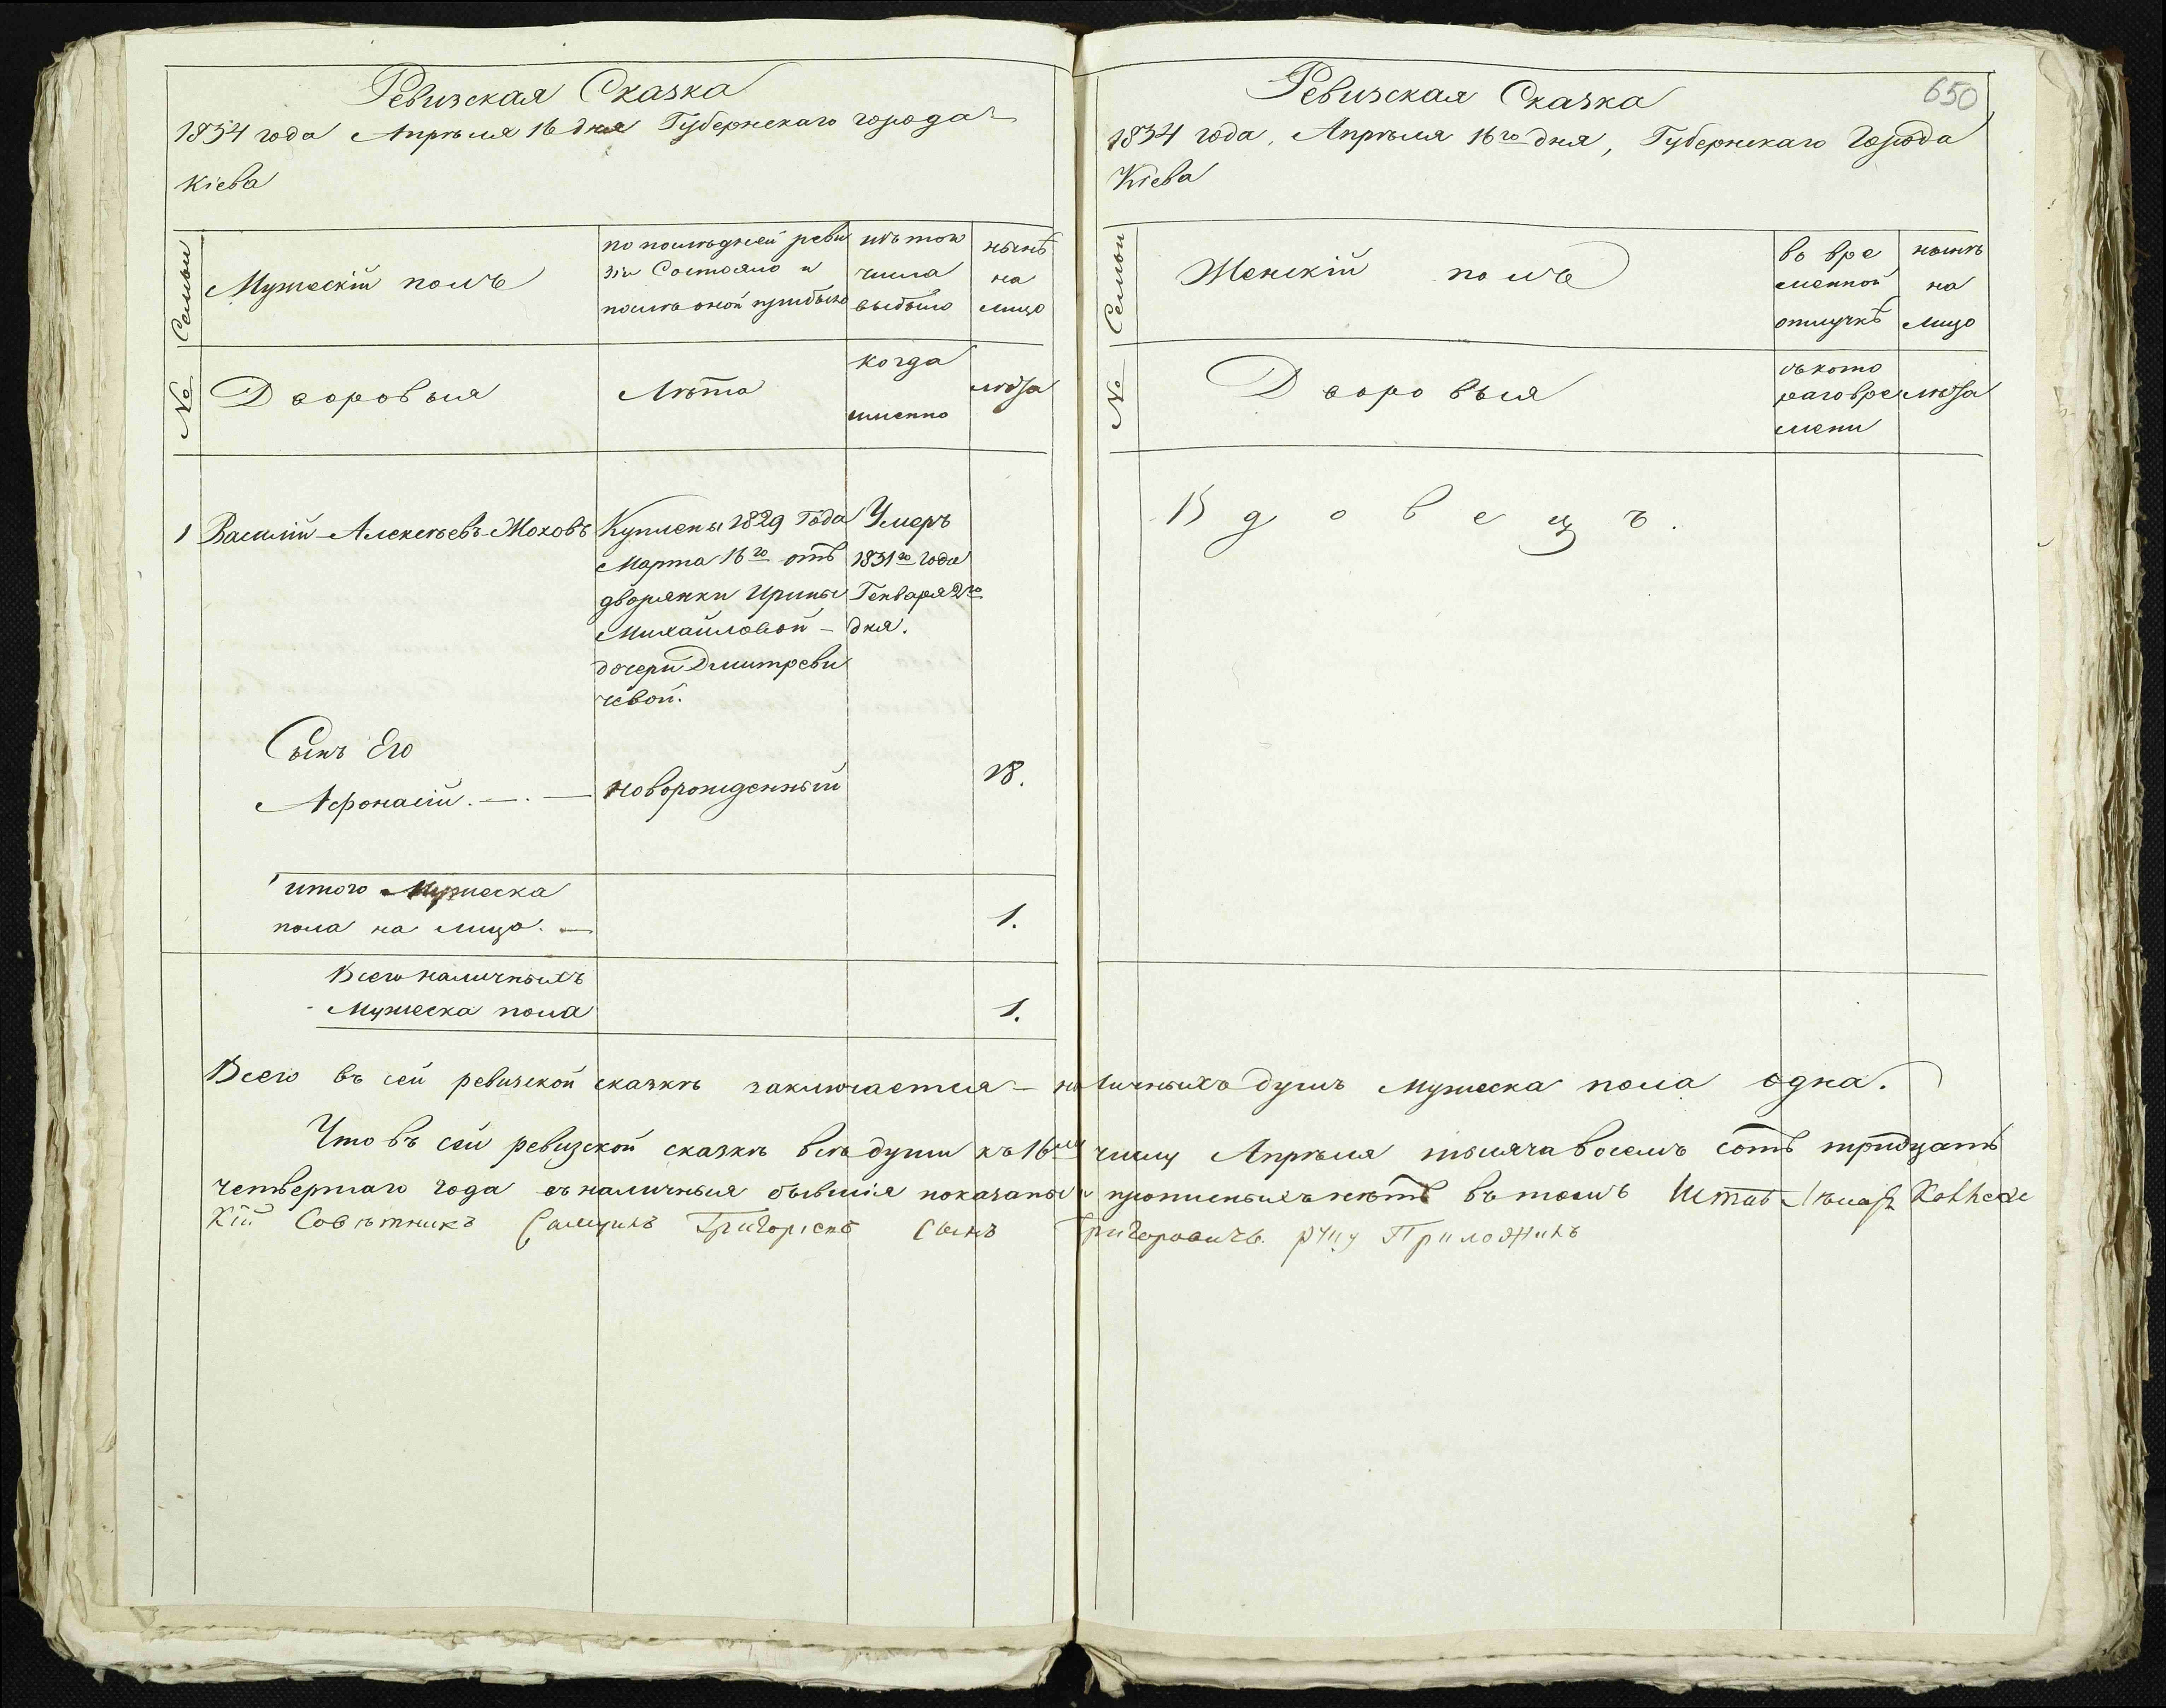 Ревизская Сказка
1834 года Апрѣля 16 дня Губернскаго города
Кіева
Семьи
Мужескій полъ
по послѣдней реви
зіи Состояло и
послѣ оной прибыло
изъ того
числа
выбыло
нынѣ
на
лицо
№
Дворовыя
Лѣта
когда
именно
лѣта
1 Василій Алексѣевъ Моховъ
Куплены 1829 Года
Марта 16го отъ
дворянки Ирины
Михайловой -
дочери Дмитреви
чевой.
Умеръ
1831го года
Генваря 2го
дня.
Сынъ Его
Афонасій. —. —
новорожденный
18.
итого Мужеска
пола на лицо. —
1.
Всего наличныхъ
Мужеска пола
1.
650
Ревизская Сказка
1834 года, Апрѣля 16го дня, Губернскаго Города
Кіева
Семьи
Женскій полъ
во вре
менной
отлучкѣ
нынѣ
на
лицо
№
Дворовыя
съ кото
раго вре
мени
лѣта
Вдовецъ.
Всего въ сей ревизской сказкѣ заключается — наличныхъ душъ мужеска пола одна.
Что въ сей ревизской сказкѣ всѣ души къ 16му числу Апрѣля тысяча восемъ сотъ тридцать
четвертаго года въ наличныя бывшія показаны и прописныхъ нѣтъ въ томъ Штаб Лѣкарь
кій Совѣтникъ Григорьевъ Сынъ Григоровичъ руку Приложилъ